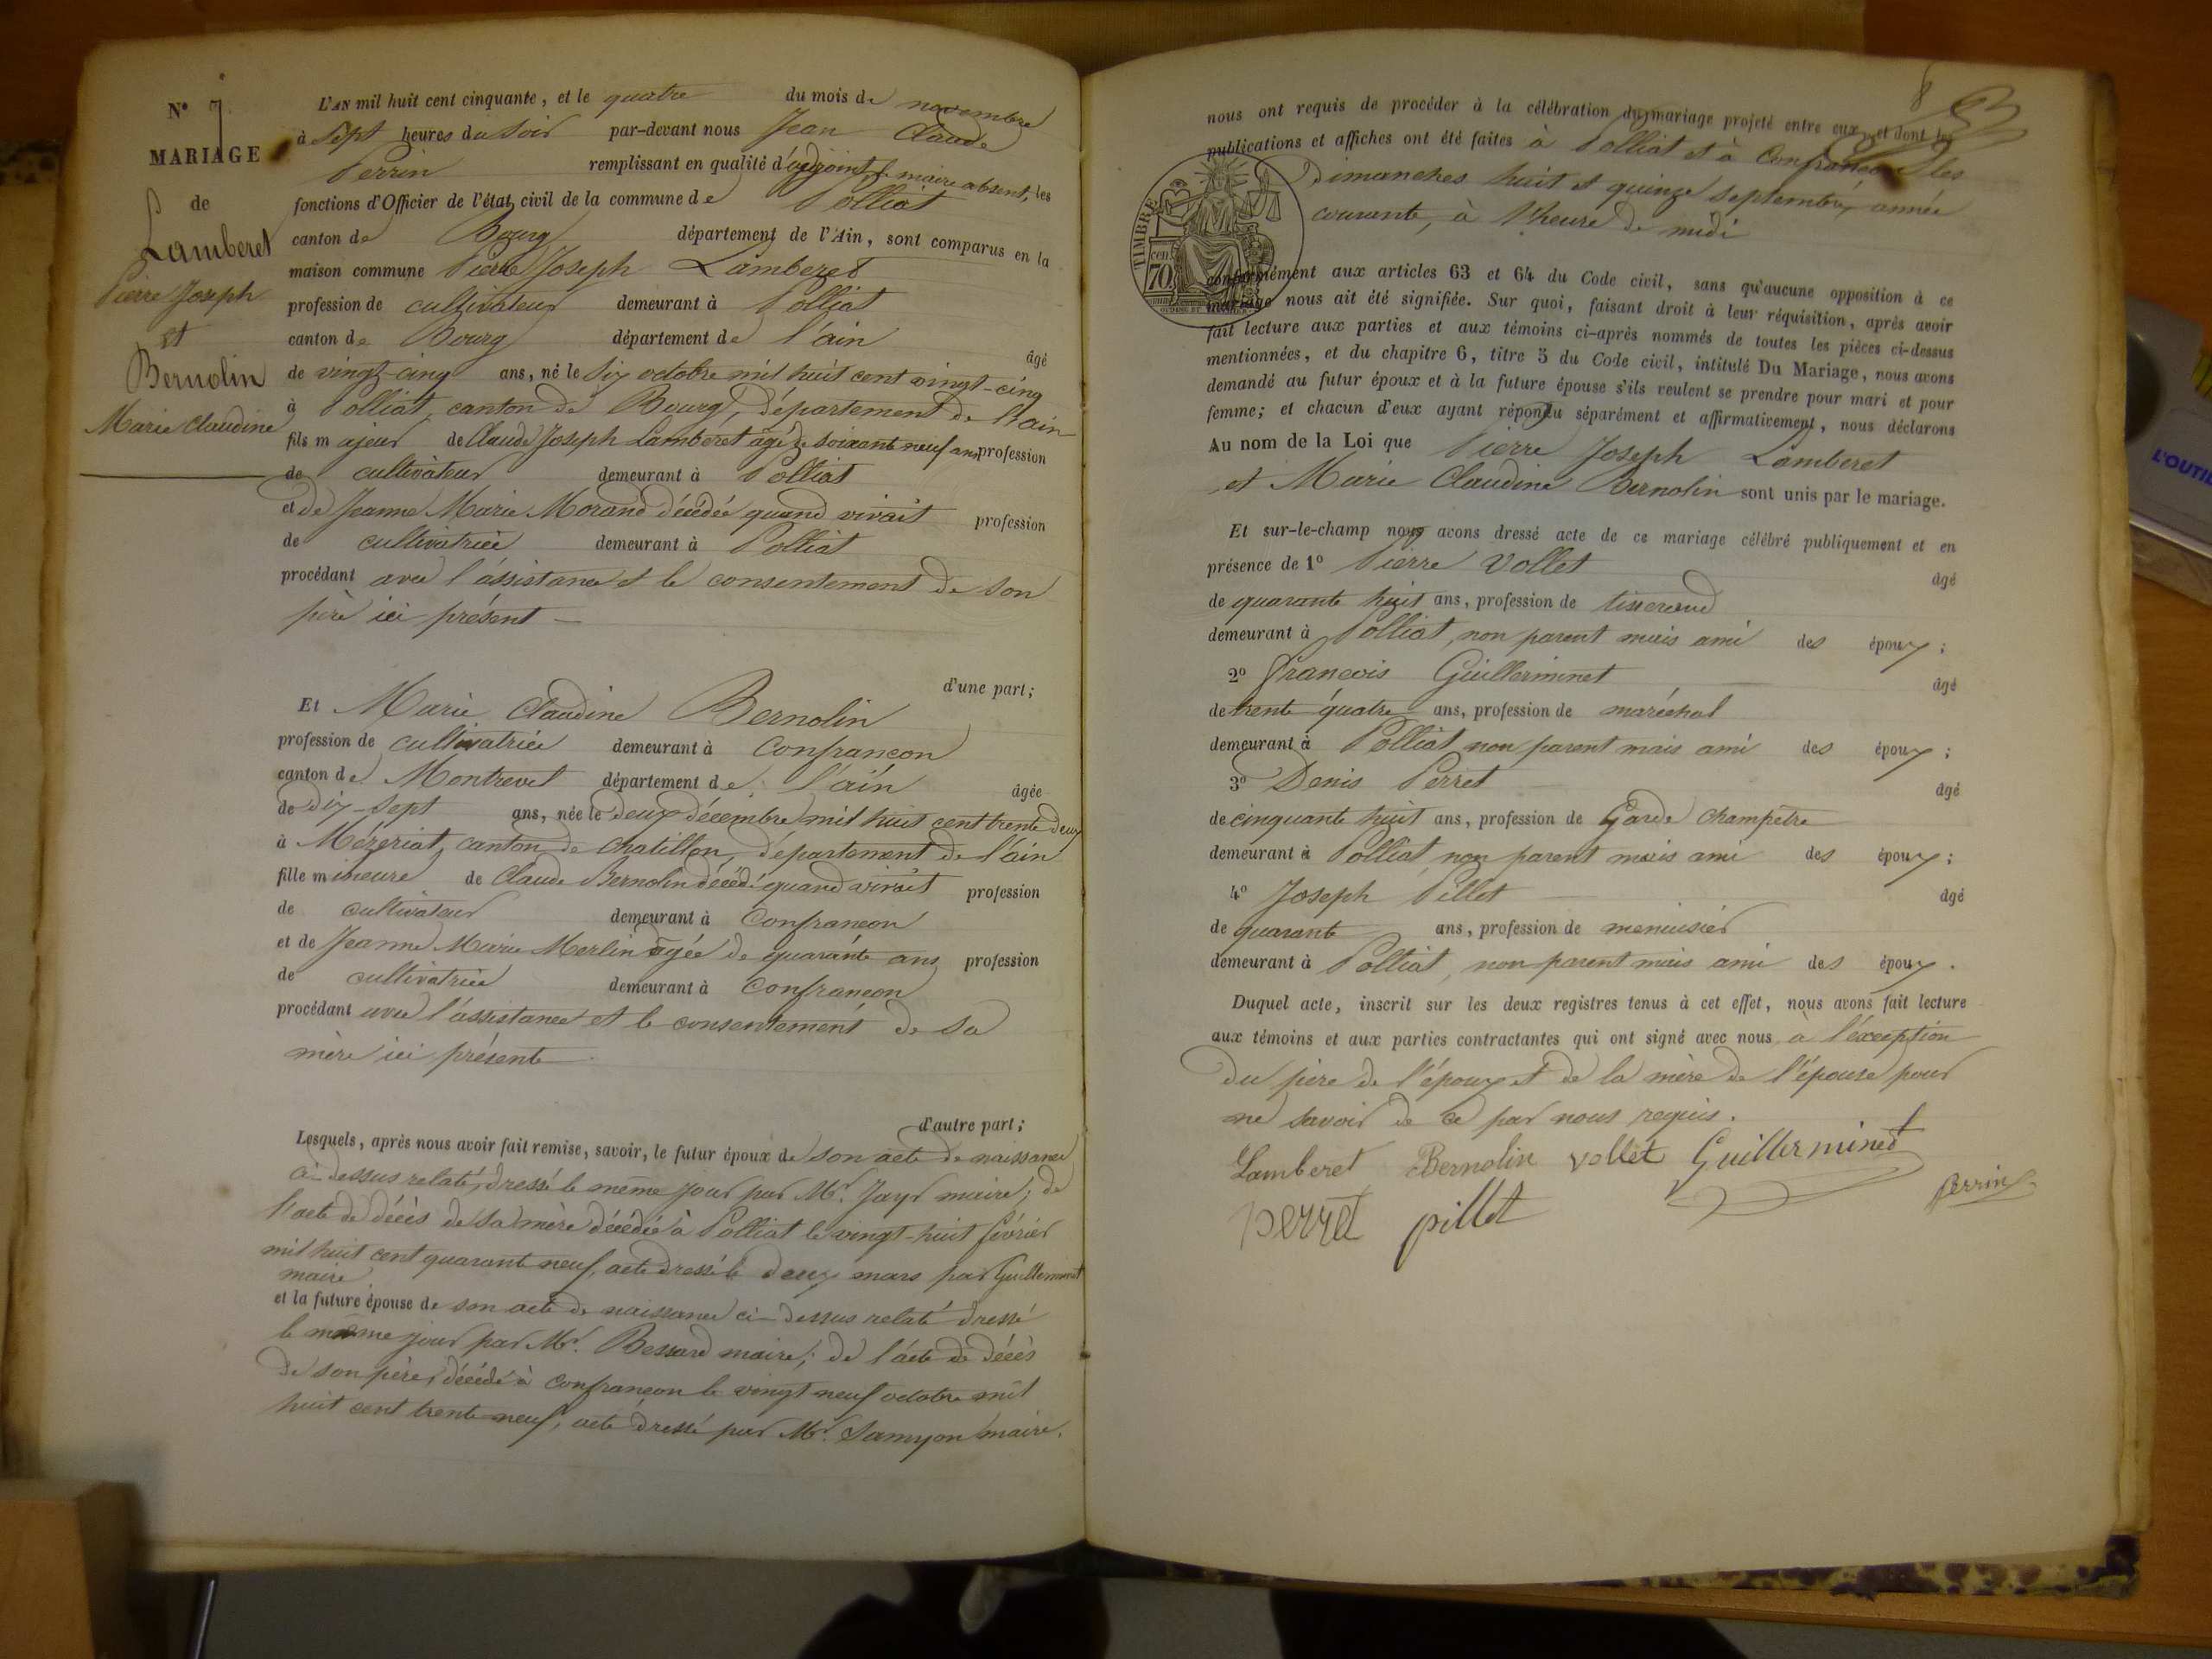 N° 7
MARIAGE
de
Lamberet
Pierre Joseph
et
Bernolin
Marie Claudine
L'AN mil huit cent cinquante, et le quatre du mois de novembre
à Sept heures du soir par-devant nous Jean Claude
Perrin remplissant en qualité d'adjoint, le maire absent, les
fonctions d'Officier de l'état civil de la commune de Polliat
canton de Bourg département de l'Ain, sont comparus en la
maison commune Pierre Joseph Lamberet
profession de cultivateur demeurant à Polliat
canton de Bourg département de l'ain âgé
de vingt-cinq ans, né le six octobre mil huit cent vingt-cinq
à Polliat, canton de Bourg, département de l'ain
fils majeur de Claude Joseph Lamberet âgé de soixante neuf ans profession
de cultivateur demeurant à Polliat
et de Jeanne Marie Morand décédée quand vivait profession
de cultivatrice demeurant à Polliat
procédant avec l'assistance et le consentement de son
père ici présent
d'une part;
Et Marie Claudine Bernolin
profession de cultivatrice demeurant à Confrançon
canton de Montrevel département de l'ain âgée
de dix-sept ans, née le deux décembre mil huit cent trente deux
à Mézériat, canton de Chatillon, département de l'ain
fille mineure de Claude Bernolin décédé quand vivait profession
de cultivateur demeurant à Confrançon
et de Jeanne Marie Merlin âgée de quarante ans profession
de cultivatrice demeurant à Confrançon
procédant avec l'assistance et le consentement de sa
mère ici présente
d'autre part;
Lesquels, après nous avoir fait remise, savoir, le futur époux de son acte de naissance
ci-dessus relaté, dressé le même jour par Mr. Jayr maire; de
l'acte de décès de sa mère décédée à Polliat le vingt-huit février
mil huit cent quarante neuf, acte dressé le deux mars par Guillerminet
maire
et la future épouse de son acte de naissance ci-dessus relaté dressé
le même jour par Mr. Bessard maire; de l'acte de décès
de son père, décédé à Confrançon le vingt neuf octobre mil
huit cent trente neuf, acte dressé par Mr. Samyon maire.
8
nous ont requis de procéder à la célébration du mariage projeté entre eux, et dont les
publications et affiches ont été faites à Polliat et à Confrançon les
Dimanches huit et quinze septembre, année
courante, à l'heure de midi
TIMBRE
70 cen
conformément aux articles 63 et 64 du Code civil, sans qu'aucune opposition à ce
mariage nous ait été signifiée. Sur quoi, faisant droit à leur réquisition, après avoir
fait lecture aux parties et aux témoins ci-après nommés de toutes les pièces ci-dessus
mentionnées, et du chapitre 6, titre 5 du Code civil, intitulé Du Mariage, nous avons
demandé au futur époux et à la future épouse s'ils veulent se prendre pour mari et pour
femme; et chacun d'eux ayant répondu séparément et affirmativement, nous déclarons
Au nom de la Loi que Pierre Joseph Lamberet
et Marie Claudine Bernolin sont unis par le mariage.
Et sur-le-champ nous avons dressé acte de ce mariage célébré publiquement et en
présence de 1° Pierre Vollet âgé
de quarante huit ans, profession de tisserand
demeurant à Polliat, non parent mais ami des époux;
2° François Guillerminet âgé
de trente quatre ans, profession de maréchal
demeurant à Polliat non parent mais ami des époux;
3° Denis Perret âgé
de cinquante huit ans, profession de Garde Champetre
demeurant à Polliat, non parent mais ami des époux;
4° Joseph Pillet âgé
de quarante ans, profession de menuisier
demeurant à Polliat, non parent mais ami des époux.
Duquel acte, inscrit sur les deux registres tenus à cet effet, nous avons fait lecture
aux témoins et aux parties contractantes qui ont signé avec nous à l'éxception
du père de l'époux et de la mère de l'épouse pour
ne savoir de ce par nous requis.
Lamberet Bernolin vollet Guillerminet
perret pillet perrin
L'OUTIL